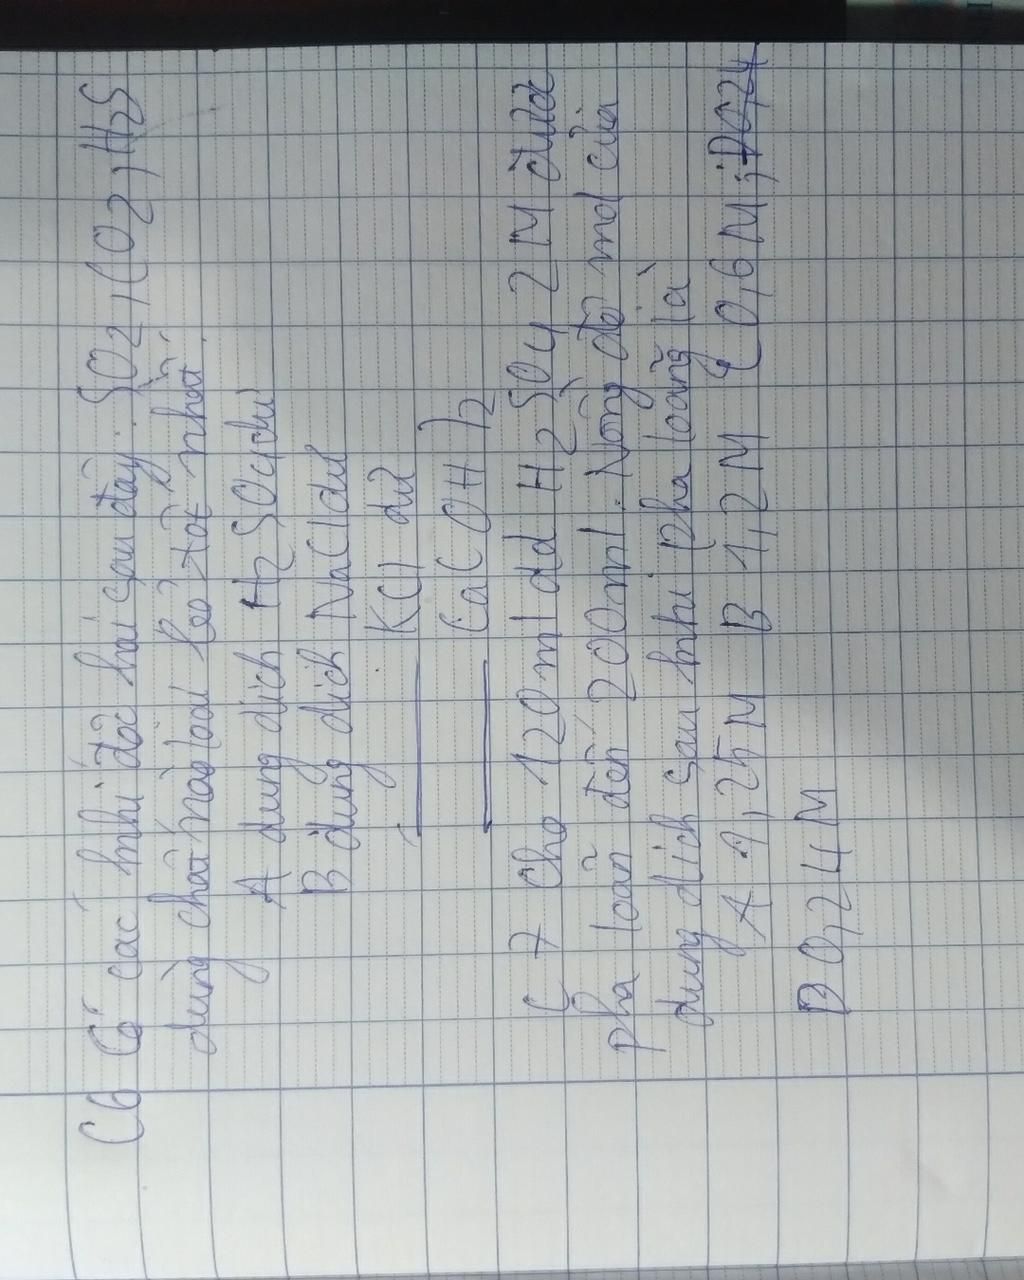 C6 Có các khí độc hại sau đây: SO2, CO2, H2S
dùng chất nào loại bỏ tốt nhất
A dung dịch H2SO4 dư
B dung dịch NaCl dư
KCl dư
Ca(OH)2
C7 Cho 120ml dd H2SO4 2M được
pha loãn đến 200ml. Nồng độ mol của
dung dịch sau khi pha loãng là
A 1,25M B 1,2M C 0,6M;
D 0,24M